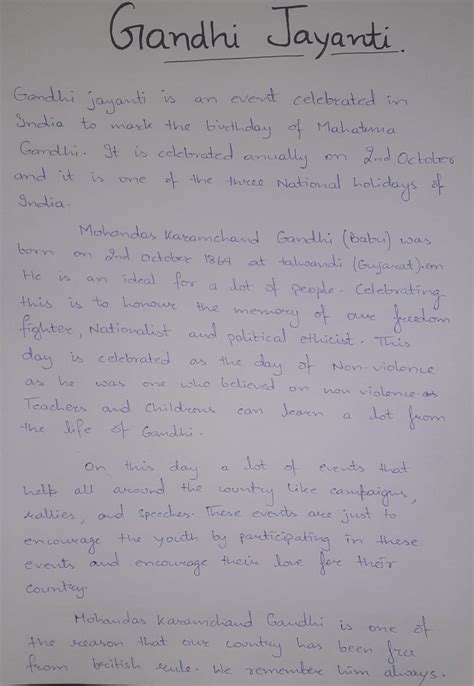 Gandhi Jayanti.
Gandhi jayanti is an event celebrated in
India to mark the birthday of Mahatma
Gandhi. It is celebrated anually on 2nd October
and it is one of the three National holidays of
India.
Mohandas Karamchand Gandhi (Babu) was
born on 2nd October 1869 at talwandi (Gujarat).
He is an ideal for a lot of people. Celebrating
this is to honour the memory of our freedom
fighter, Nationalist and political ethicist. This
day is celebrated as the day of Non-violence
as he was one who believed on non violence.
Teachers and Childrens can learn a lot from
the life of Gandhi.
On this day a lot of events that
help all around the country like campaigns,
rallies, and speeches. These events are just to
encourage the youth by participating in these
events and encourage their love for their
country.
Mohandas Karamchand Gandhi is one of
the reason that our country has been free
from british rule. We remember him always.